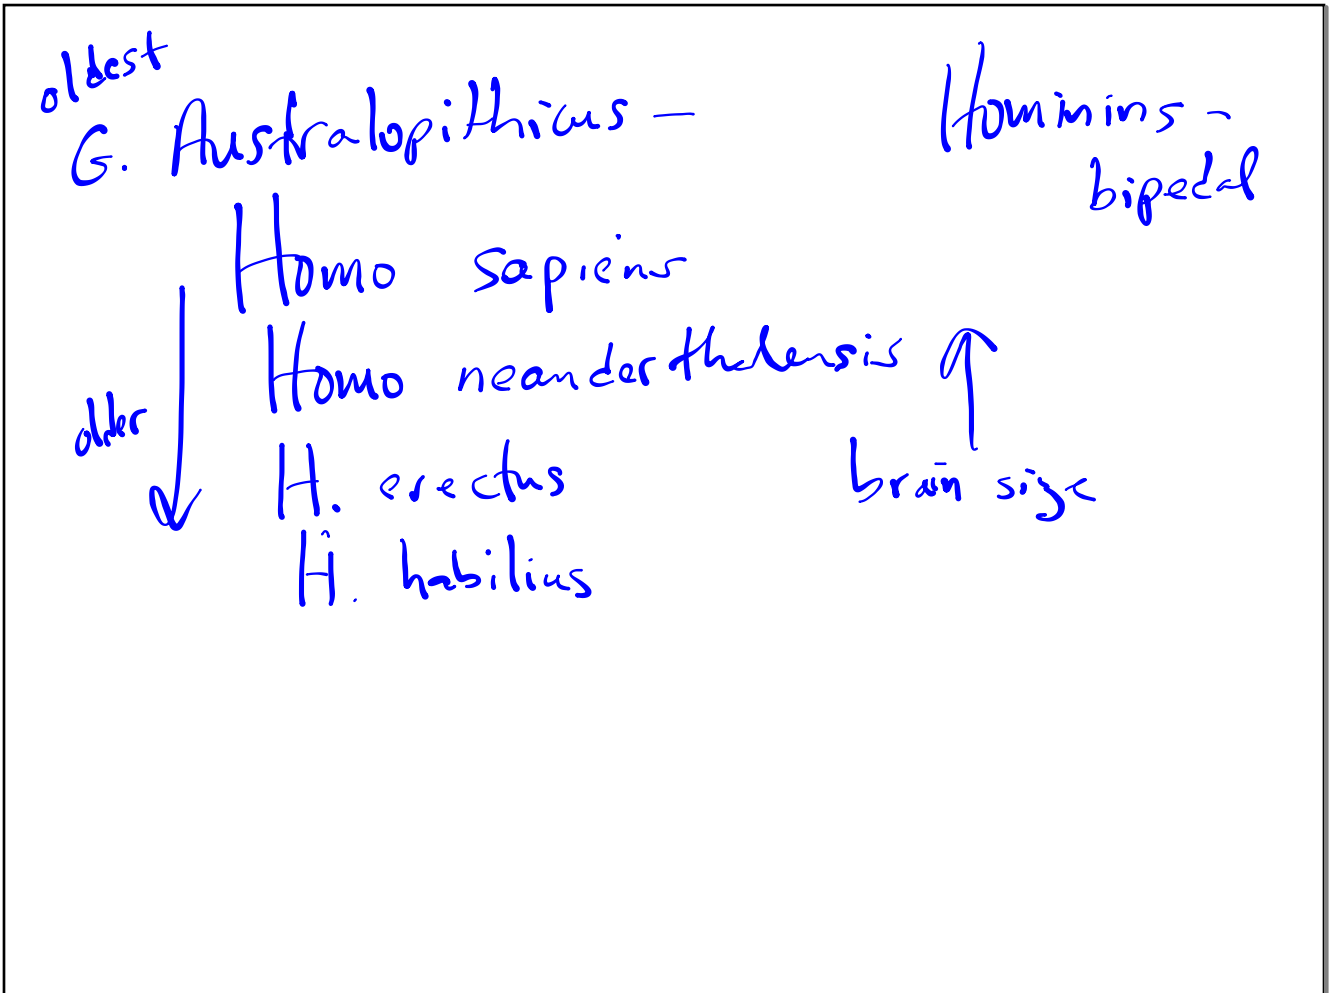 oldest
G. Australopithicus - Hominins -
bipedal
Homo sapiens
Homo neanderthalensis
older
H. erectus brain size
H. habilius